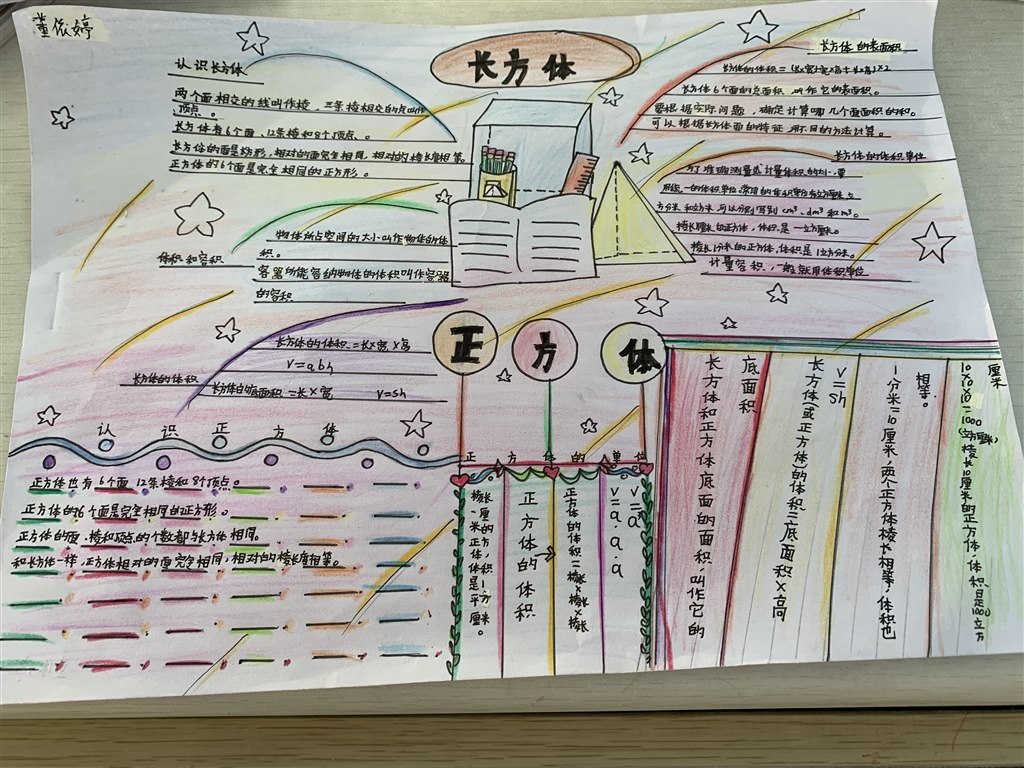 董依婷
长方体
认识长方体
两个面相交的线叫作棱，三条棱相交的点叫作
顶点。
长方体有6个面、12条棱和8个顶点。
长方体的面是长方形，相对的面完全相同，相对的棱长度相等。
正方体的6个面是完全相同的正方形。
体积和容积
物体所占空间的大小叫作物体的体
积。
容器所能容纳物体的体积叫作容器
的容积
长方体的体积
长方体的体积=长×宽×高
V=abh
长方体的底面积=长×宽 V=sh
长方体的表面积
长方体6个面的总面积，叫作它的表面积。
要根据实际问题，确定计算哪几个面面积的和。
可以根据长方体面的特征，用不同的方法计算。
长方体的体积单位
为了准确测量或计量体积的大小，要
用统一的体积单位。常用的体积单位有立方厘米、立
方分米和立方米，可以分别写别cm³、dm³和m³。
棱长1厘米的正方体，体积是一立方厘米。
棱长1分米的正方体，体积是1立方分米。
计量容积，一般就用体积单位
正方体
认识正方体
正方体也有6个面 12条棱和8个顶点。
正方体的6个面是完全相同的正方形。
正方体的面、棱和顶点的个数都与长方体相同。
和长方体一样，正方体相对的面完全相同，相对的棱长度相等。
正方体的单位
正方体的体积
正方体的体积=棱长×棱长×棱长
V=a·a·a
V=a³
长方体和正方体底面的面积，叫作它的
底面积
长方体(或正方体)的体积=底面积×高
V=sh
1分米=10厘米，两个正方体棱长相等，体积也
相等。
棱长10厘米的正方体，体积是1000立方
厘米